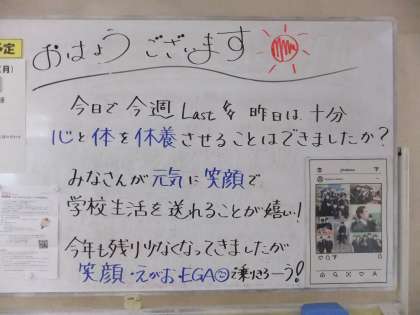 おはようございます
予定
(月)
今日で今週Last 昨日は十分
心と体を休養させることはできましたか?
みなさんが元気に笑顔で
学校生活を送れることが嬉しい!
今年も残り少なくなってきましたが
笑顔・えがお・EGAOで乗りきろーう!